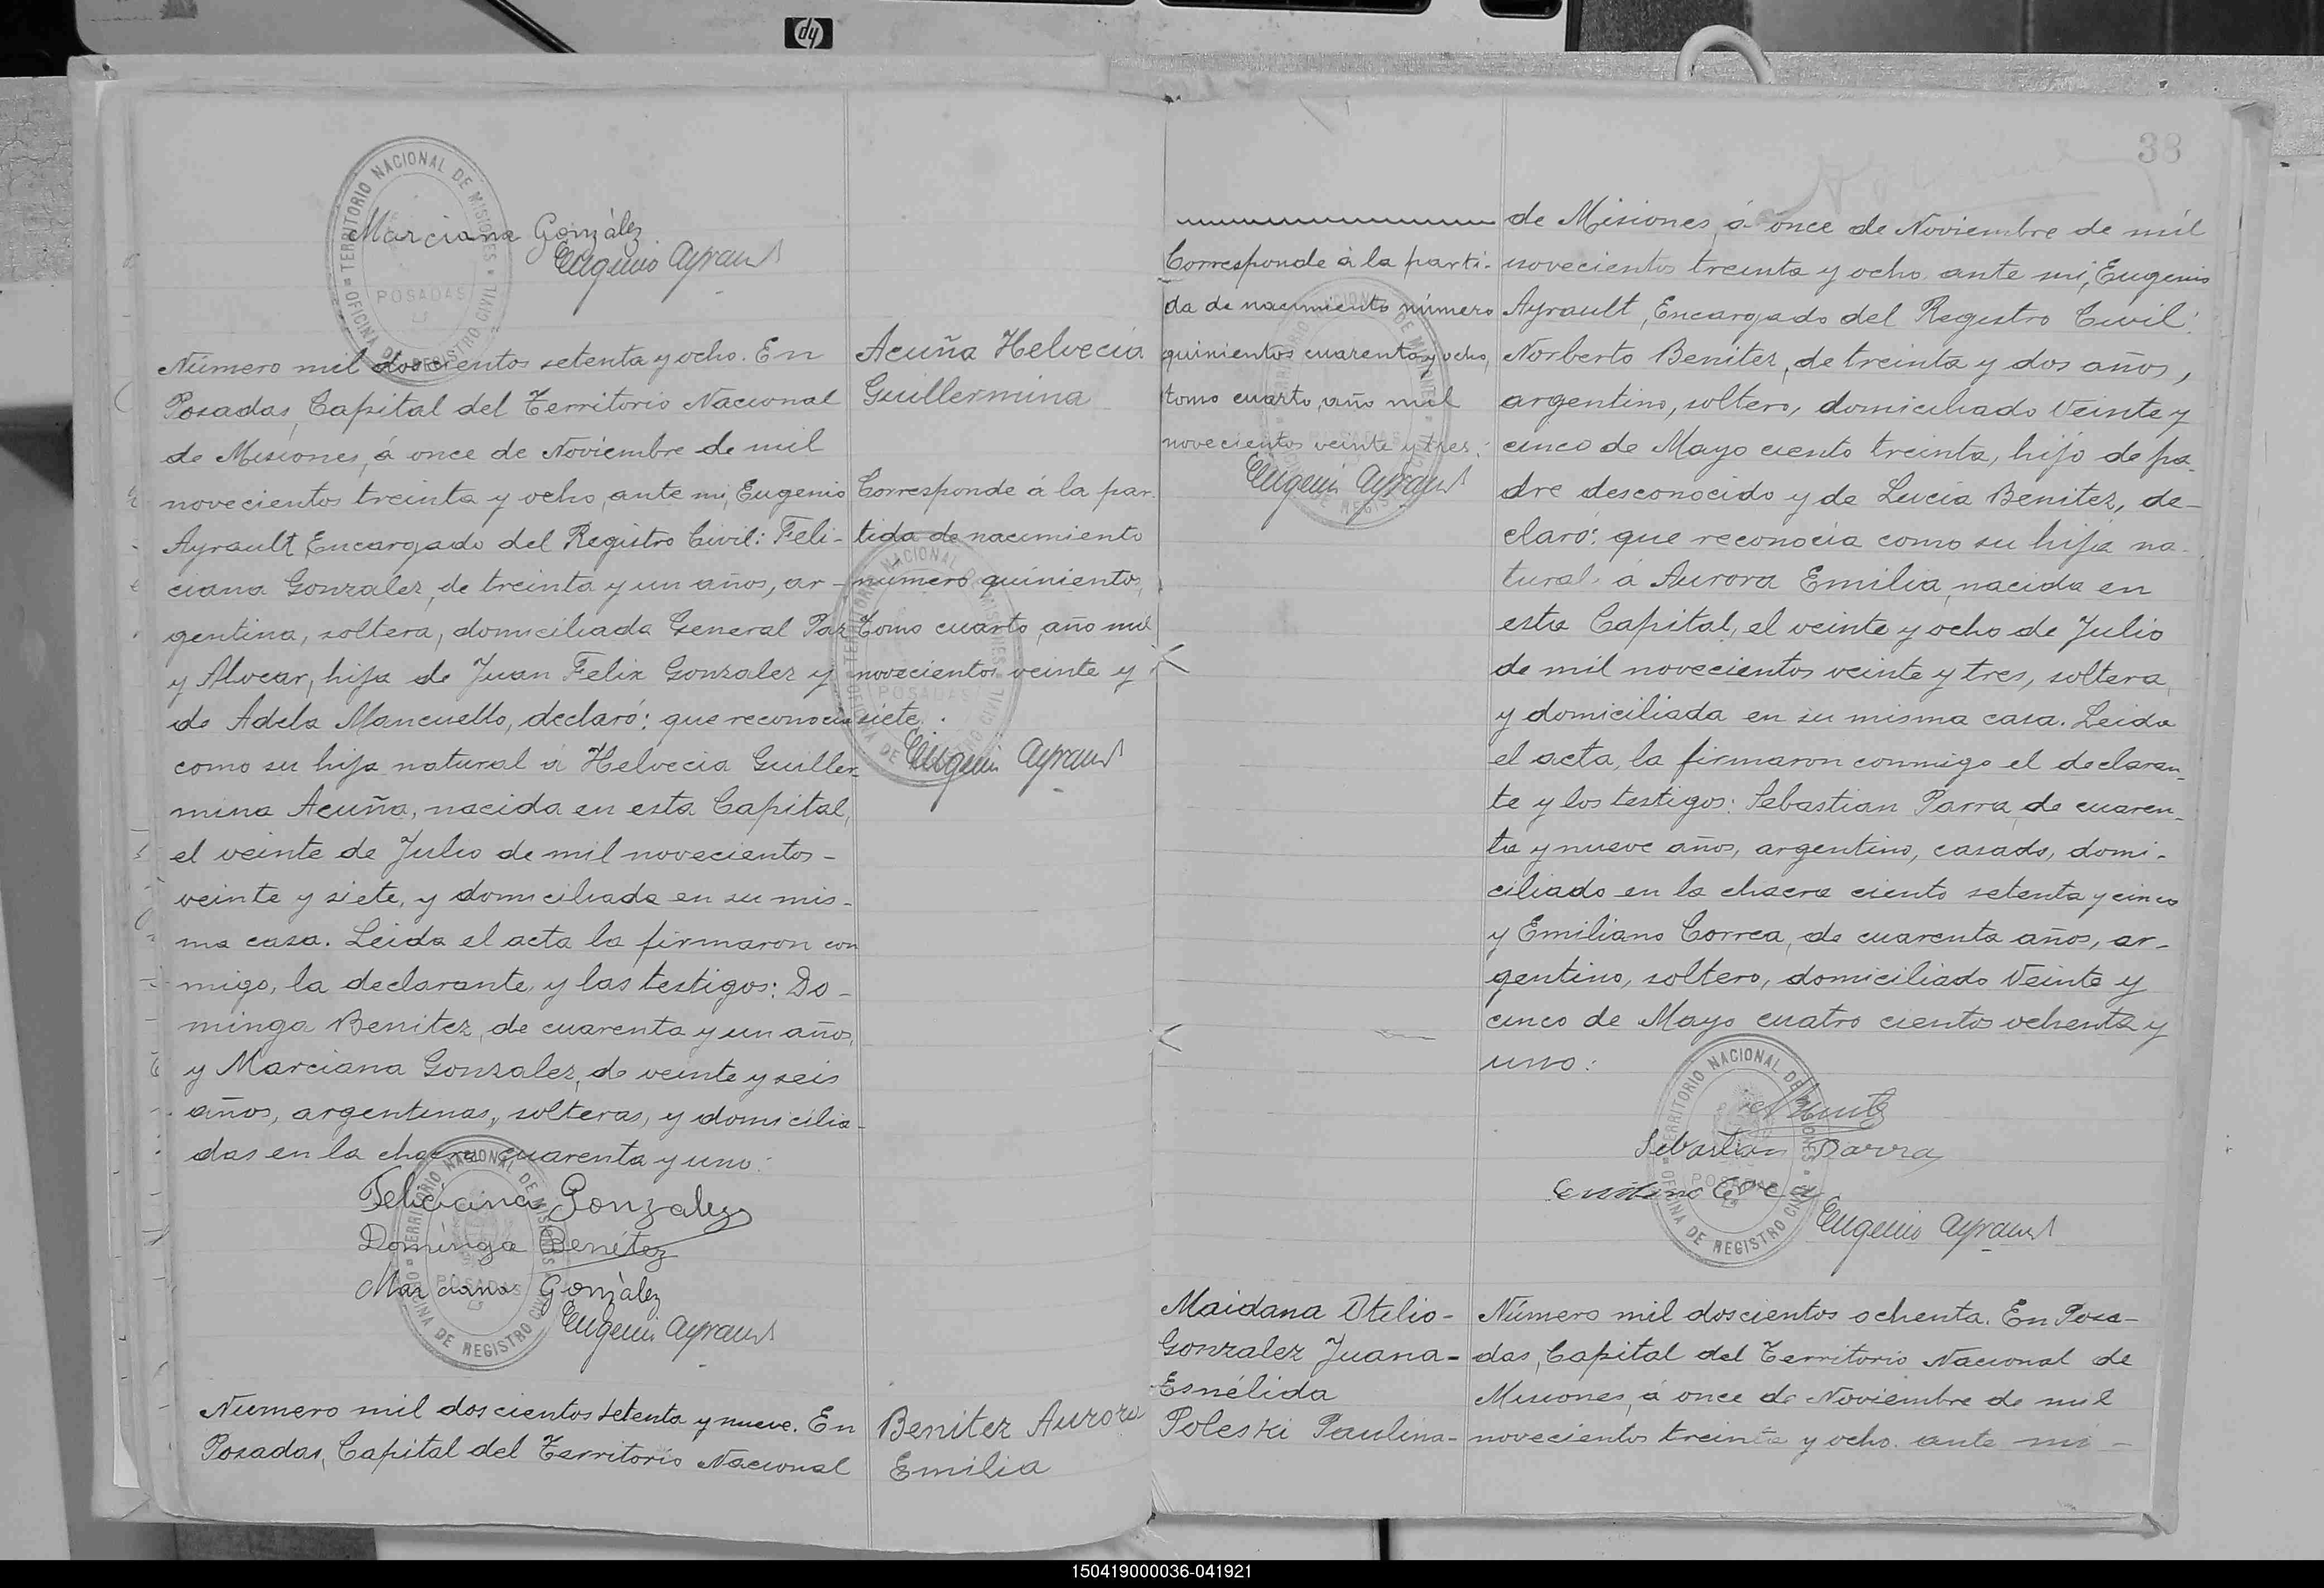 hp
TERRITORIO NACIONAL DE MISIONES
OFICINA DE REGISTRO CIVIL
POSADAS
Marciana Gonzàlez
Eugenio Ayrault
Número mil doscientos setenta y ocho. En
Posadas, Capital del Territorio Nacional
de Misiones, á once de Noviembre de mil
novecientos treinta y ocho, ante mi, Eugenio
Ayrault, Encargado del Registro Civil: Feli-
ciana Gonzalez, de treinta y un años, ar-
gentina, soltera, domiciliada General Paz
y Alvear, hija de Juan Felix Gonzalez y
de Adela Mancuello, declaró: que reconocia
como su hija natural á Helvecia Guiller-
mina Acuña, nacida en esta Capital,
el veinte de Julio de mil novecientos-
veinte y siete, y domiciliada en su mis-
ma casa. Leida el acta la firmaron con
migo, la declarante, y las testigos: Do-
minga Benitez, de cuarenta y un años,
y Marciana Gonzalez, de veinte y seis
años, argentinas, solteras, y domicilia-
das en la chacra cuarenta y uno:
Feliciana Gonzalez
Dominga Benítez
Marciana Gonzàlez
Eugenio Ayrault
TERRITORIO NACIONAL DE MISIONES
OFICINA DE REGISTRO CIVIL
POSADAS
Acuña Helvecia
Guillermina
Corresponde á la par-
tida de nacimiento
numero quinientos,
Tomo cuarto, año mil
novecientos veinte y
siete.
Eugenio Ayrault
TERRITORIO NACIONAL DE MISIONES
POSADAS
Número mil doscientos setenta y nueve. En
Posadas, Capital del Territorio Nacional
Benitez Aurora
Emilia
38
de Misiones, á once de Noviembre de mil
novecientos treinta y ocho. ante mi, Eugenio
Ayrault, Encargado del Registro Civil:
Norberto Benitez, de treinta y dos años,
argentino, soltero, domiciliado Veinte y
cinco de Mayo ciento treinta, hijo de pa-
dre desconocido y de Lucia Benitez, de-
claró: que reconocia como su hija na-
tural á Aurora Emilia, nacida en
esta Capital, el veinte y ocho de Julio
de mil novecientos veinte y tres, soltera,
y domiciliada en su misma casa. Leida
el acta, la firmaron conmigo el declaran-
te y los testigos: Sebastian Parra, de cuaren-
ta y nueve años, argentino, casado, domi-
ciliado en la chacra ciento setenta y cinco
y Emiliano Correa, de cuarenta años, ar-
gentino, soltero, domiciliado Veinte y
cinco de Mayo cuatro cientos ochenta y
uno:
Sebastian Parra
Eugenio Ayrault
TERRITORIO NACIONAL DE MISIONES
OFICINA DE REGISTRO CIVIL
POSADAS
Corresponde á la parti-
da de nacimiento número
quinientos cuarenta y ocho,
tomo cuarto, año mil
novecientos veinte y tres:
Eugenio Ayrault
Maidana Otilio-
Gonzalez Juana-
Esnélida
Poleski Paulina-
Número mil doscientos ochenta. En Posa-
das, Capital del Territorio Nacional de
Misiones, á once de Noviembre de mil
novecientos treinta y ocho. ante mi -
150419000036-041921